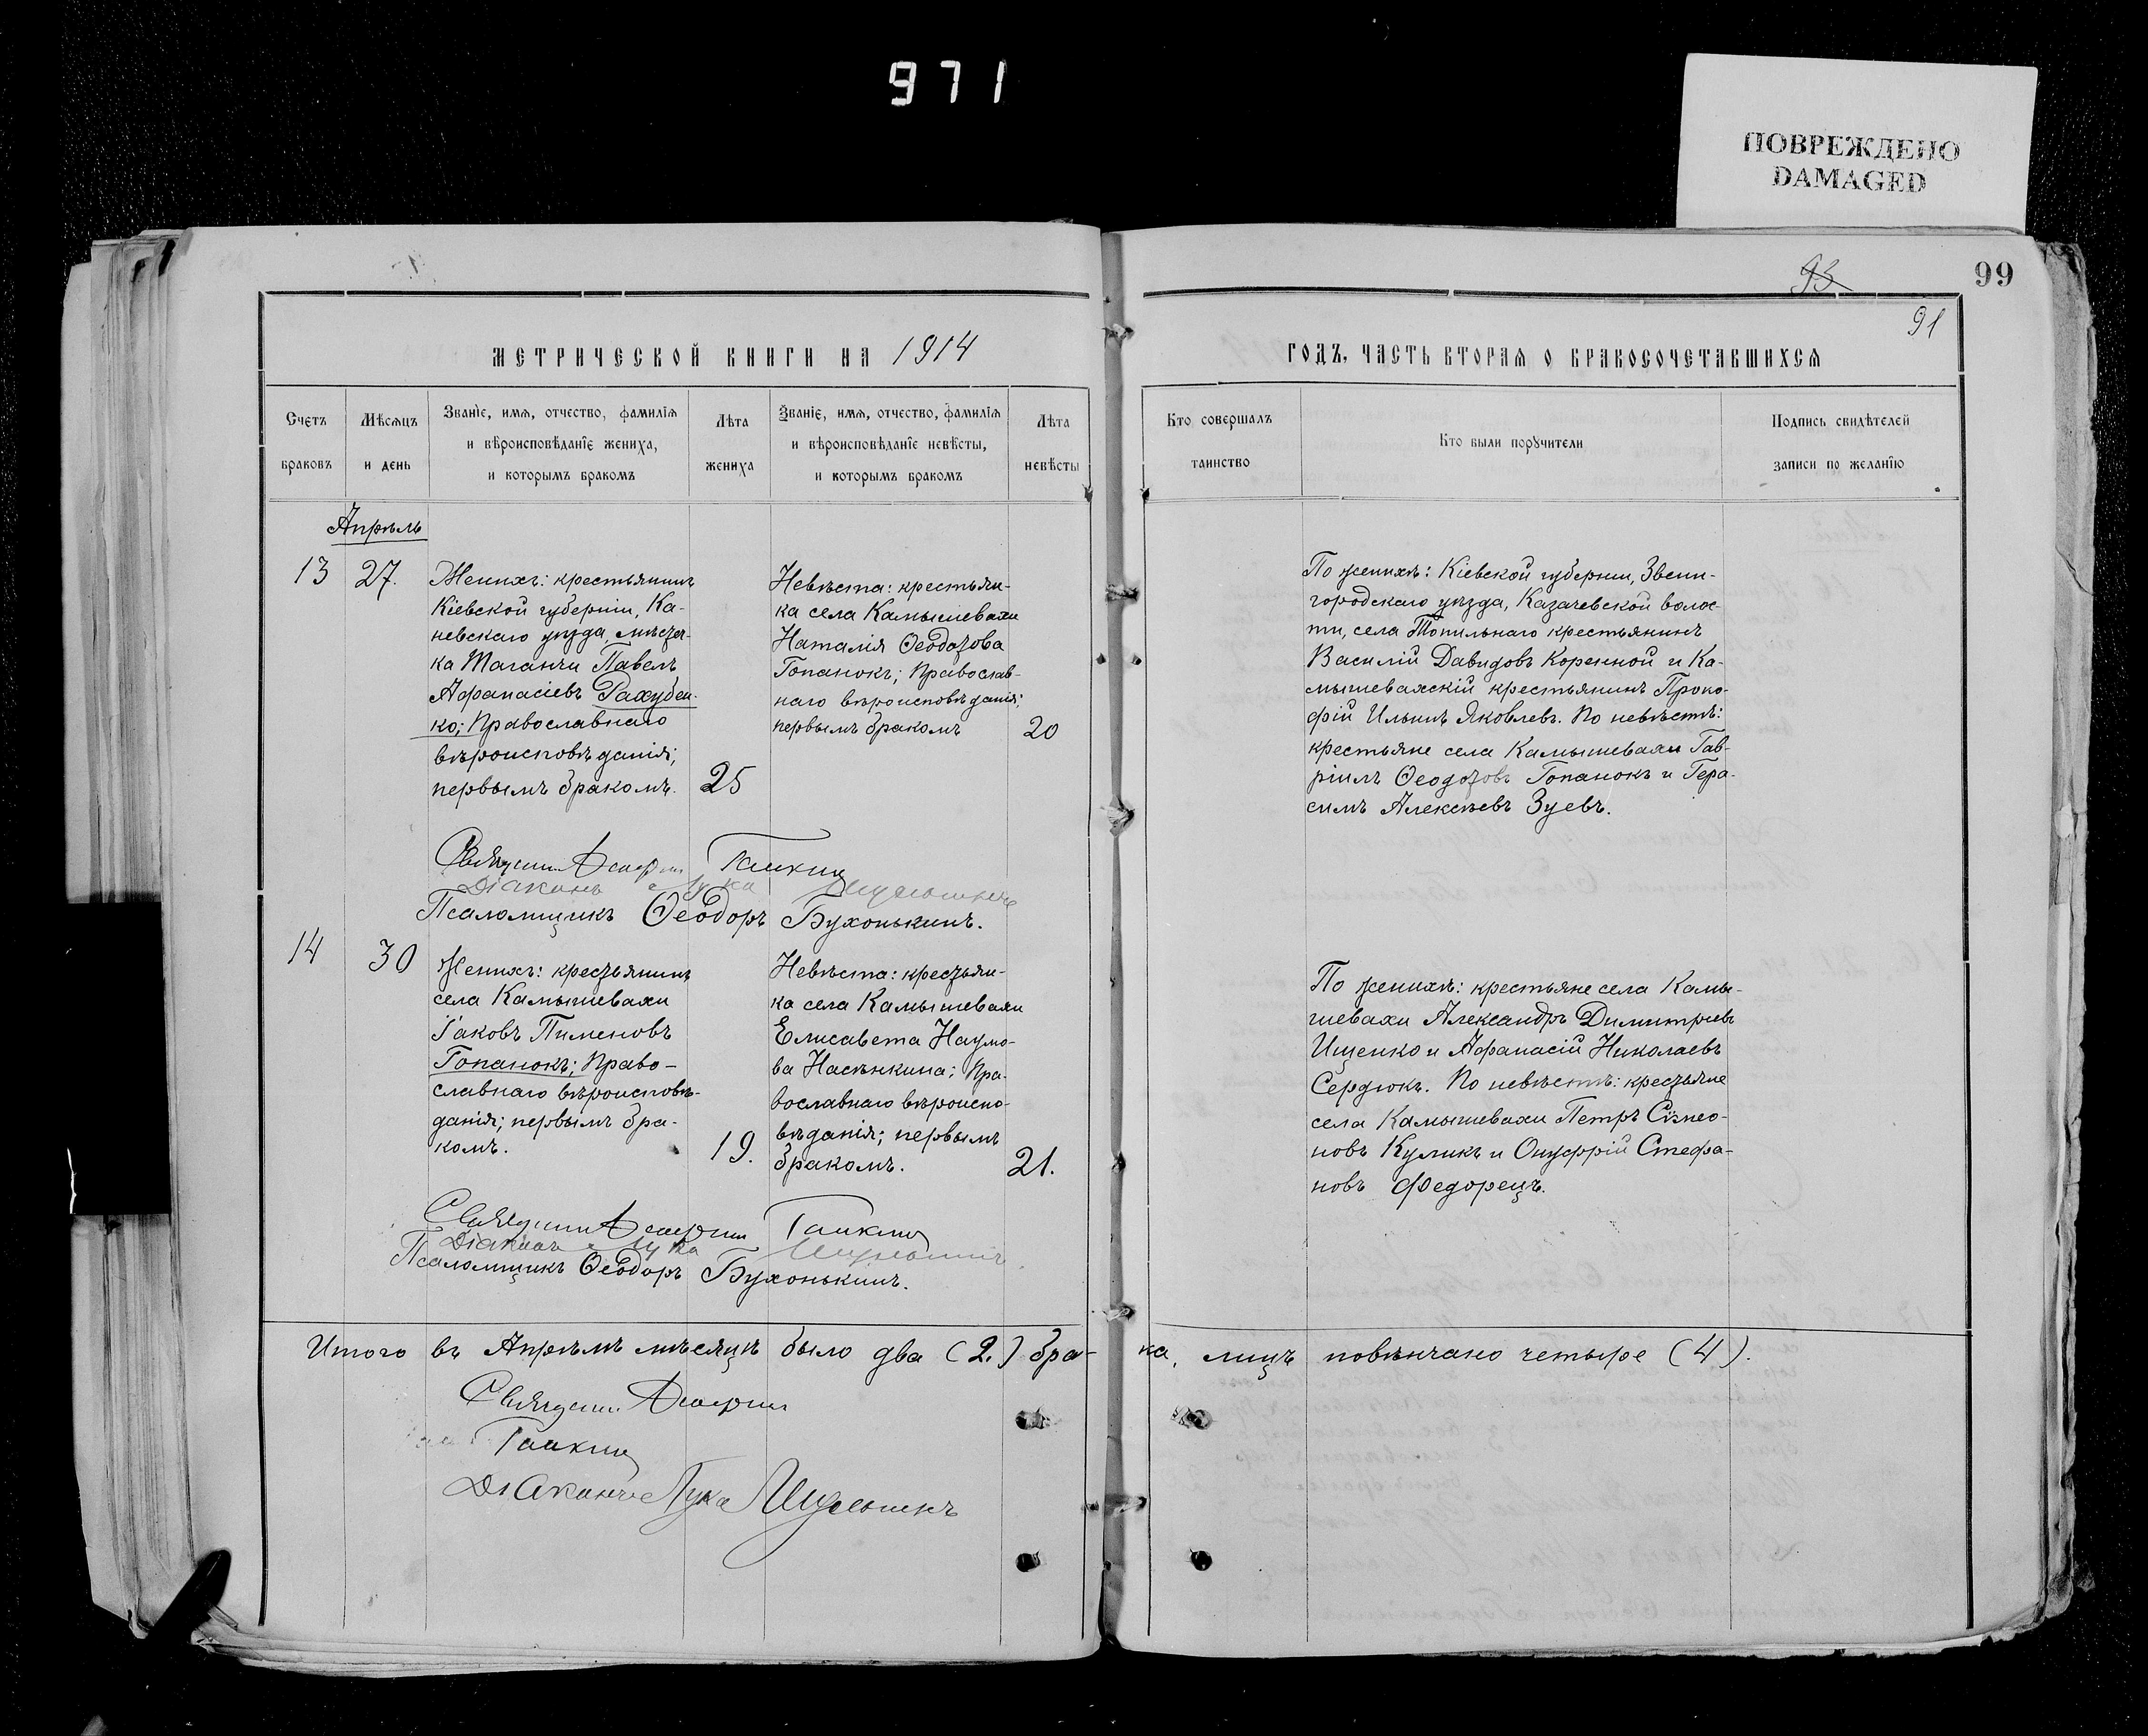 971
ПОВРЕЖДЕНО
DAMAGED
93
99
91
МЕТРИЧЕСКОЙ КНИГИ НА 1914
ГОДЪ, ЧАСТЬ ВТОРАЯ О БРАКОСОЧЕТАВШИХСЯ
Счетъ
браковъ
Мѣсяцъ
и день
Званїе, имя, отчество, фамилїя
и вѣроисповѣданїе жениха,
и которымъ бракомъ
Лѣта
жениха
Званїе, имя, отчество, фамилїя
и вѣроисповѣданїе невѣсты,
и которымъ бракомъ
Лѣта
невѣсты
Кто совершалъ
таинство
Кто были порꙋчители
Подпись свидѣтелей
записи по желанїю
Апрѣль
13
27.
Женихъ: крестьянинъ
Кіевской губерніи, Ка-
невскаго уѣзда, мѣстеч-
ка Таганчи Павелъ
Афанасіевъ Рахубен-
ко; Православнаго
вѣроисповѣданія;
первымъ бракомъ.
25
Невѣста: крестьян-
ка села Камышевахи
Наталія Ѳеодотова
Гопанокъ; Православ-
наго вѣроисповѣданія;
первымъ бракомъ
20
По женихѣ: Кіевской губерніи, Звени-
городскаго уѣзда, Казачевской волос-
ти, села Топильнаго крестьянинъ
Василій Давидовъ Коренной и Ка-
мышевахскій крестьянинъ Проко-
фій Ильинъ Яковлевъ. По невѣстѣ:
крестьяне села Камышевахи Гав-
ріилъ Ѳеодотовъ Гопанокъ и Гера-
симъ Алексѣевъ Зуевъ.
Діаконъ Лука
Псаломщикъ Ѳеодоръ Бухонькинъ.
14
30
Женихъ: крестьянинъ
села Камышевахи
Іаковъ Пименовъ
Гопанокъ; Право-
славнаго вѣроисповѣ-
данія; первымъ бра-
комъ.
19.
Невѣста: крестьян-
ка села Камышевахи
Елисавета Наумо-
ва Насѣнкина; Пра-
вославнаго вѣроиспо-
вѣданія; первымъ
бракомъ.
21.
По женихѣ: крестьяне села Камы-
шевахи Александръ Димитріевъ
Ищенко и Афанасій Николаевъ
Сердюкъ. По невѣстѣ: крестьяне
села Камышевахи Петръ Сѵмео-
новъ Куликъ и Онуфрій Стефа-
новъ Федорецъ.
Діаконъ Лука
Псаломщикъ Ѳеодоръ Бухонькинъ.
Итого въ Апрѣлѣ мѣсяцѣ было два (2.) бра-
ка, лицъ повѣнчано четыре (4).
Діаконъ Лука